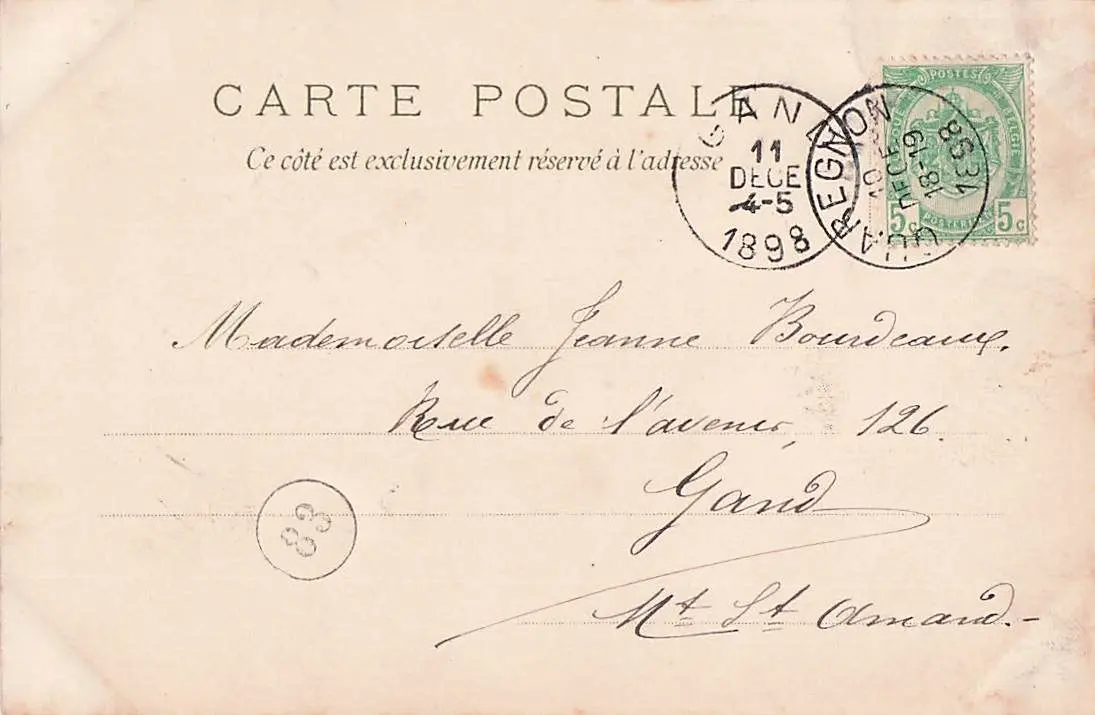 CARTE POSTALE
Ce côté est exclusivement réservé à l'adresse
GAN
11
DECE
4-5
1898
QUAREGNON
10
DECE
18-19
POSTES
5c 5c
Mademoiselle Jeanne Bourdeaux.
Rue de l'avenir, 126.
Gand
Mt St Amand.-
83